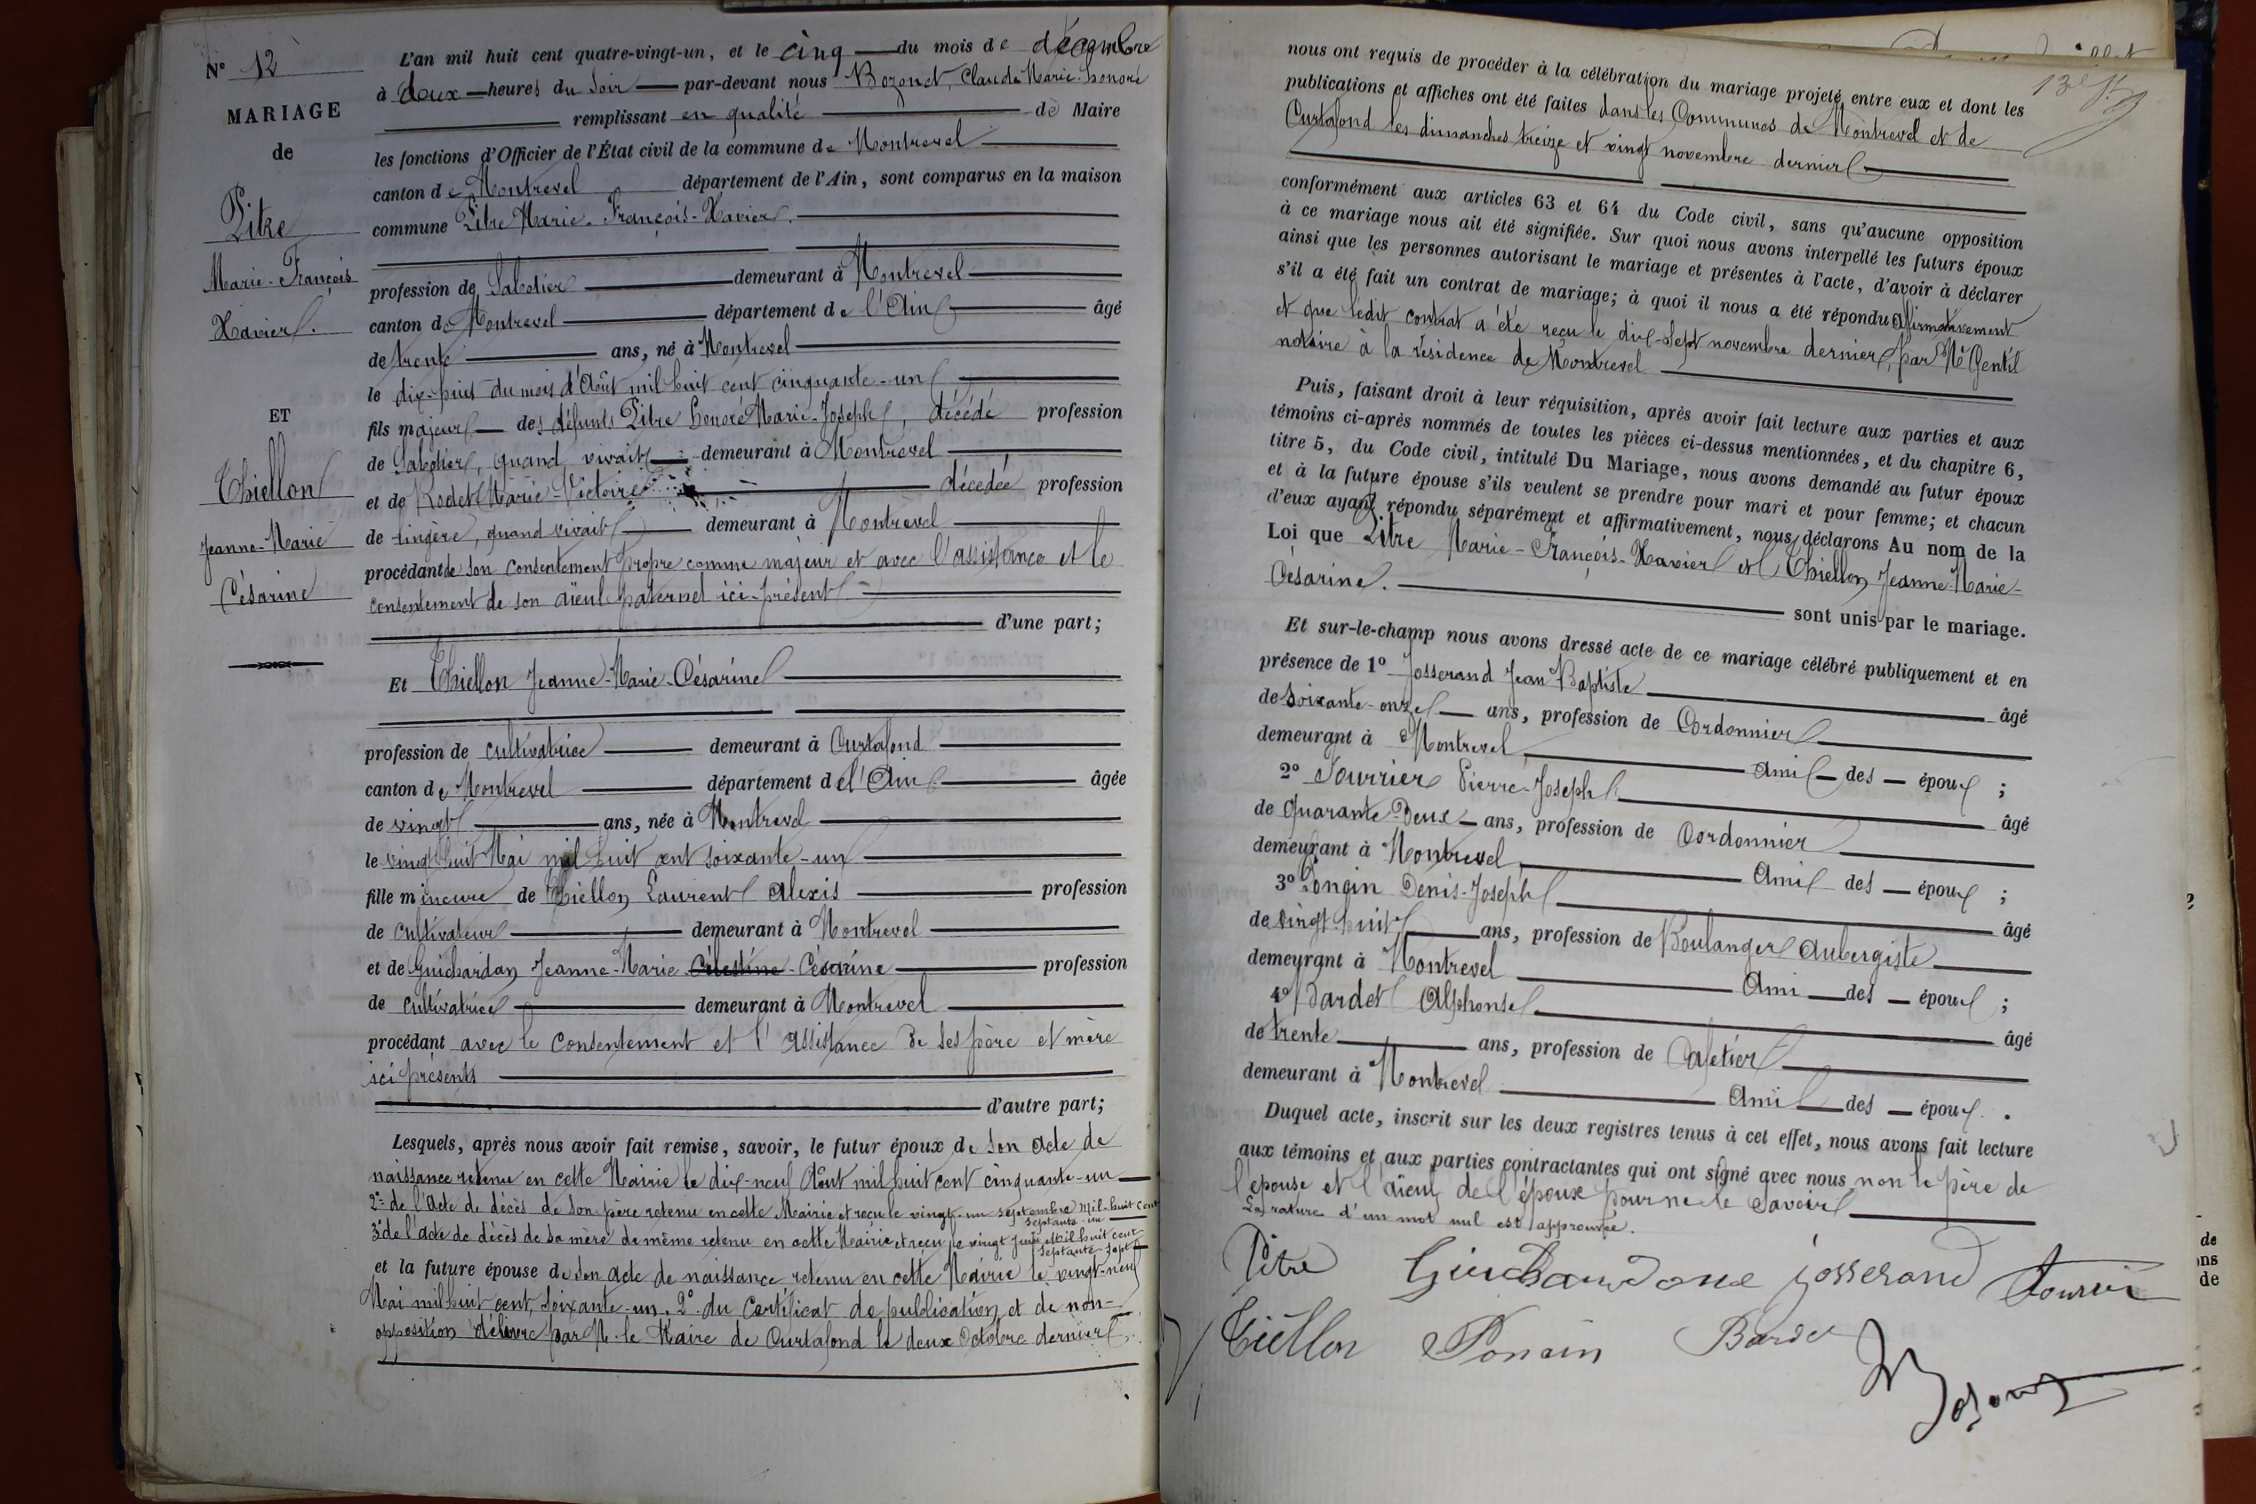 N° 12
MARIAGE
de
Pitre
Marie-François
Xavier.
ET
Thiellon
Jeanne-Marie
Césarine
L'an mil huit cent quatre-vingt-un, et le cinq du mois de décembre
à deux heures du soir par-devant nous Bozonet, Claude Marie-honoré
remplissant en qualité de Maire
les fonctions d'Officier de l'État civil de la commune de Montrevel
canton de Montrevel département de l'Ain, sont comparus en la maison
commune Pitre Marie-François-Xavier.
profession de Sabotier demeurant à Montrevel
canton de Montrevel département de l'Ain âgé
de trente ans, né à Montrevel
le dix-huit du mois d'Août mil huit cent cinquante-un
fils majeur des défunts Pitre honoré Marie-Joseph, décédé profession
de Sabotier, quand vivait demeurant à Montrevel
et de Rodet Marie-Victoire décédée profession
de lingère, quand vivait demeurant à Montrevel
procédant de son consentement propre comme majeur et avec l'assistance et le
consentement de son aïeul paternel ici-présent
d'une part;
Et Thiellon Jeanne-Marie-Césarine
profession de cultivatrice demeurant à Curtafond
canton de Montrevel département de l'Ain âgée
de vingt ans, née à Montrevel
le vingt huit Mai mil huit cent soixante-un
fille mineure de Thiellon Laurent Alexis profession
de cultivateur demeurant à Montrevel
et de Guichardon Jeanne-Marie Célestine-Césarine profession
de cultivatrice demeurant à Montrevel
procédant avec le consentement et l'assistance de ses père et mère
ici présents
d'autre part;
Lesquels, après nous avoir fait remise, savoir, le futur époux de son acte de
naissance retenu en cette Mairie le dix-neuf Août mil huit cent cinquante-un
2° de l'acte de décès de son père retenu en cette Mairie et reçu le vingt-un septembre mil-huit cent
septante-un
3° de l'acte de décès de sa mère de même retenu en cette Mairie et reçu le vingt Juin mil huit cent
septante-sept
et la future épouse de son acte de naissance retenu en cette Mairie le vingt-neuf
Mai mil huit cent soixante-un. 2° du Certificat de publication et de non-
opposition délivré par M. le Maire de Curtafond le deux Octobre dernier
nous ont requis de procéder à la célébration du mariage projeté entre eux et dont les
publications et affiches ont été faites dans les Communes de Montrevel et de
Curtafond les dimanches treize et vingt novembre dernier
conformément aux articles 63 et 64 du Code civil, sans qu'aucune opposition
à ce mariage nous ait été signifiée. Sur quoi nous avons interpellé les futurs époux
ainsi que les personnes autorisant le mariage et présentes à l'acte, d'avoir à déclarer
s'il a été fait un contrat de mariage; à quoi il nous a été répondu affirmativement
et que ledit contrat a été reçu le dix-sept novembre dernier, par Me Gentil
notaire à la résidence de Montrevel
Puis, faisant droit à leur réquisition, après avoir fait lecture aux parties et aux
témoins ci-après nommés de toutes les pièces ci-dessus mentionnées, et du chapitre 6,
titre 5, du Code civil, intitulé Du Mariage, nous avons demandé au futur époux
et à la future épouse s'ils veulent se prendre pour mari et pour femme; et chacun
d'eux ayant répondu séparément et affirmativement, nous déclarons Au nom de la
Loi que Pitre Marie-François-Xavier et Thiellon Jeanne-Marie-
Césarine. sont unis par le mariage.
Et sur-le-champ nous avons dressé acte de ce mariage célébré publiquement et en
présence de 1° Josserand Jean Baptiste âgé
de soixante-onze ans, profession de Cordonnier
demeurant à Montrevel ami des époux ;
2° Fourrier Pierre-Joseph âgé
de quarante-deux ans, profession de Cordonnier
demeurant à Montrevel Ami des époux ;
3° Poncin Denis-Joseph âgé
de vingt-huit ans, profession de Boulanger Aubergiste
demeurant à Montrevel Ami des époux ;
4° Bardet Alphonse âgé
de trente ans, profession de Cafetier
demeurant à Montrevel Ami des époux .
Duquel acte, inscrit sur les deux registres tenus à cet effet, nous avons fait lecture
aux témoins et aux parties contractantes qui ont signé avec nous non le père de
l'épouse et l'aïeul de l'époux pour ne le savoir
La rature d'un mot nul est approuvée.
Pitre Josserand
Poncin Bardet
de
ns
de